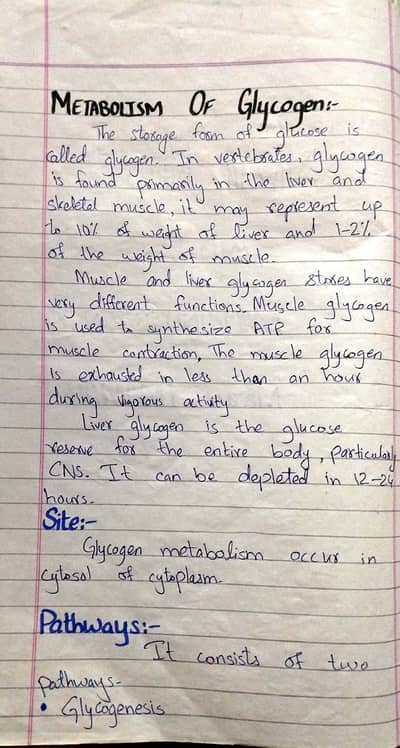 METABOLISM OF Glycogen:-
The storage form of glucose is
called glycogen. In vertebrates, glycogen
is found primarily in the liver and
skeletal muscle, it may represent up
to 10% of weight of liver and 1-2%
of the weight of muscle.
Muscle and liver glycogen stores have
very different functions. Muscle glycogen
is used to synthesize ATP for
muscle contraction, The muscle glycogen
Is exhausted in less than an hour
during vigorous activity
Liver glycogen is the glucose
reserve for the entire body, particularly
CNS. It can be depleted in 12-24
hours.
Site:-
Glycogen metabolism occur in
cytosol of cytoplasm.
Pathways:-
It consists of two
pathways-
• Glycogenesis